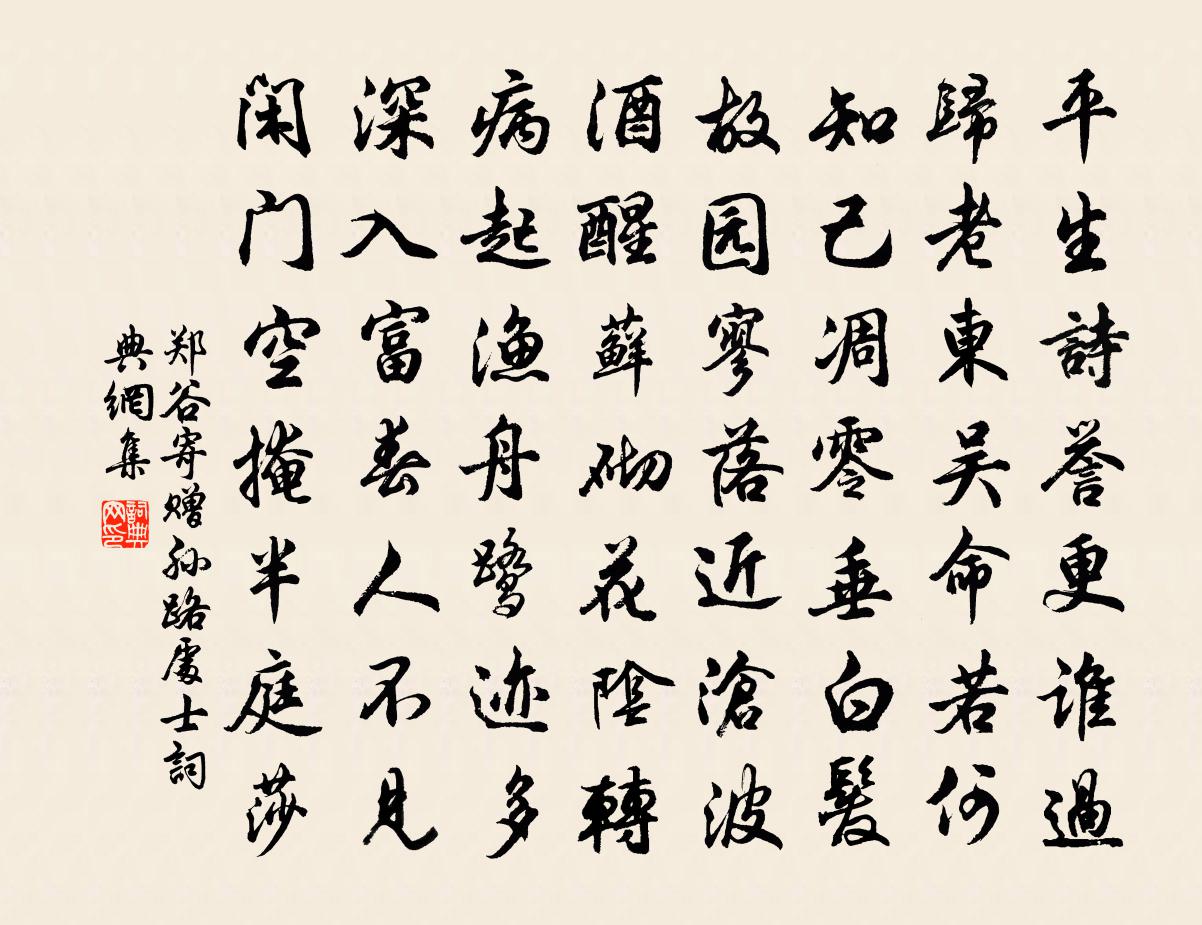 平生詩誉更谁過
歸老東吴命若何
知己凋零垂白髮
故园寥落近滄波
酒醒蘚砌花陰轉
病起渔舟鹭迹多
深入富春人不见
闲门空掩半庭莎
郑谷寄赠孙路處士詞
典網集
詞典网印